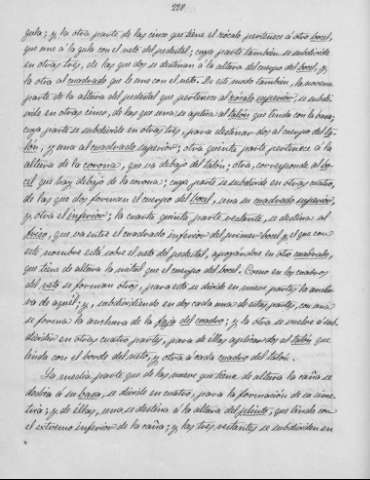 228
gola; y la otra parte de las cinco que tiene el zócalo pertenece á otro bocel,
que une á la gola con el neto del pedestal; cuya parte tambien se subdivide
en otras tres, de las que dos se destinan á la altura del cuerpo del bocel, y
la otra al cuadrado que le une con el neto. De este modo tambien, la novena
parte de la altura del pedestal que pertenece al zócalo superior, se subdi-
vide en otras cinco, de las que una se aplica al talón que linda con la basa;
cuya parte se subdivide en otras tres, para destinar dos al cuerpo del ta-
lón, y una al cuadrado superior; otra quinta parte pertenece á la
altura de la corona, que va debajo del talón; otra, corresponde al bo-
cel que hay debajo de la corona; cuya parte se subdivide en otras cuatro,
de las que dos forman el cuerpo del bocel, una su cuadrado superior,
y otra el inferior; la cuarta quinta parte restante, se destina al
friso, que va entre el cuadrado inferior del primer bocel y el que con
este nombre está sobre el neto del pedestal, apoyándose en otro cuadrado,
que tiene de altura la mitad que el cuerpo del bocel. Como en los cuadros
del neto se forman otros, para esto se divide en nueve partes la anchu-
ra de aquél; y, subdividiendo en dos cada una de estas partes, con una
se forma la anchura de la faja del cuadro; y la otra se vuelve á sub-
dividir en otras cuatro partes, para de éllas aplicar dos al talón que
linda con el borde del neto, y otra á cada cuadro del talón.
La media parte que de las nueve que tiene de altura la caña se
destina á su basa, se divide en cuatro, para la formación de su sime-
tría; y de éllas, una se destina á la altura del plinto, que linda con
el extremo inferior de la caña; y las tres restantes se subdividen en